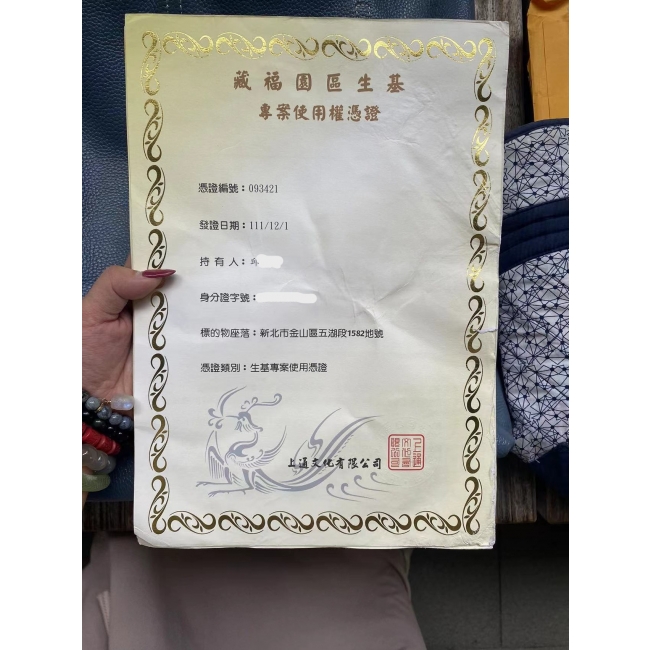 藏福園區生基
專案使用權憑證
憑證編號：093421
發證日期：111/12/1
持有人：
身分證字號：
標的物座落：新北市金山區五湖段1582地號
憑證類別：生基專案使用憑證
上通文化有限公司